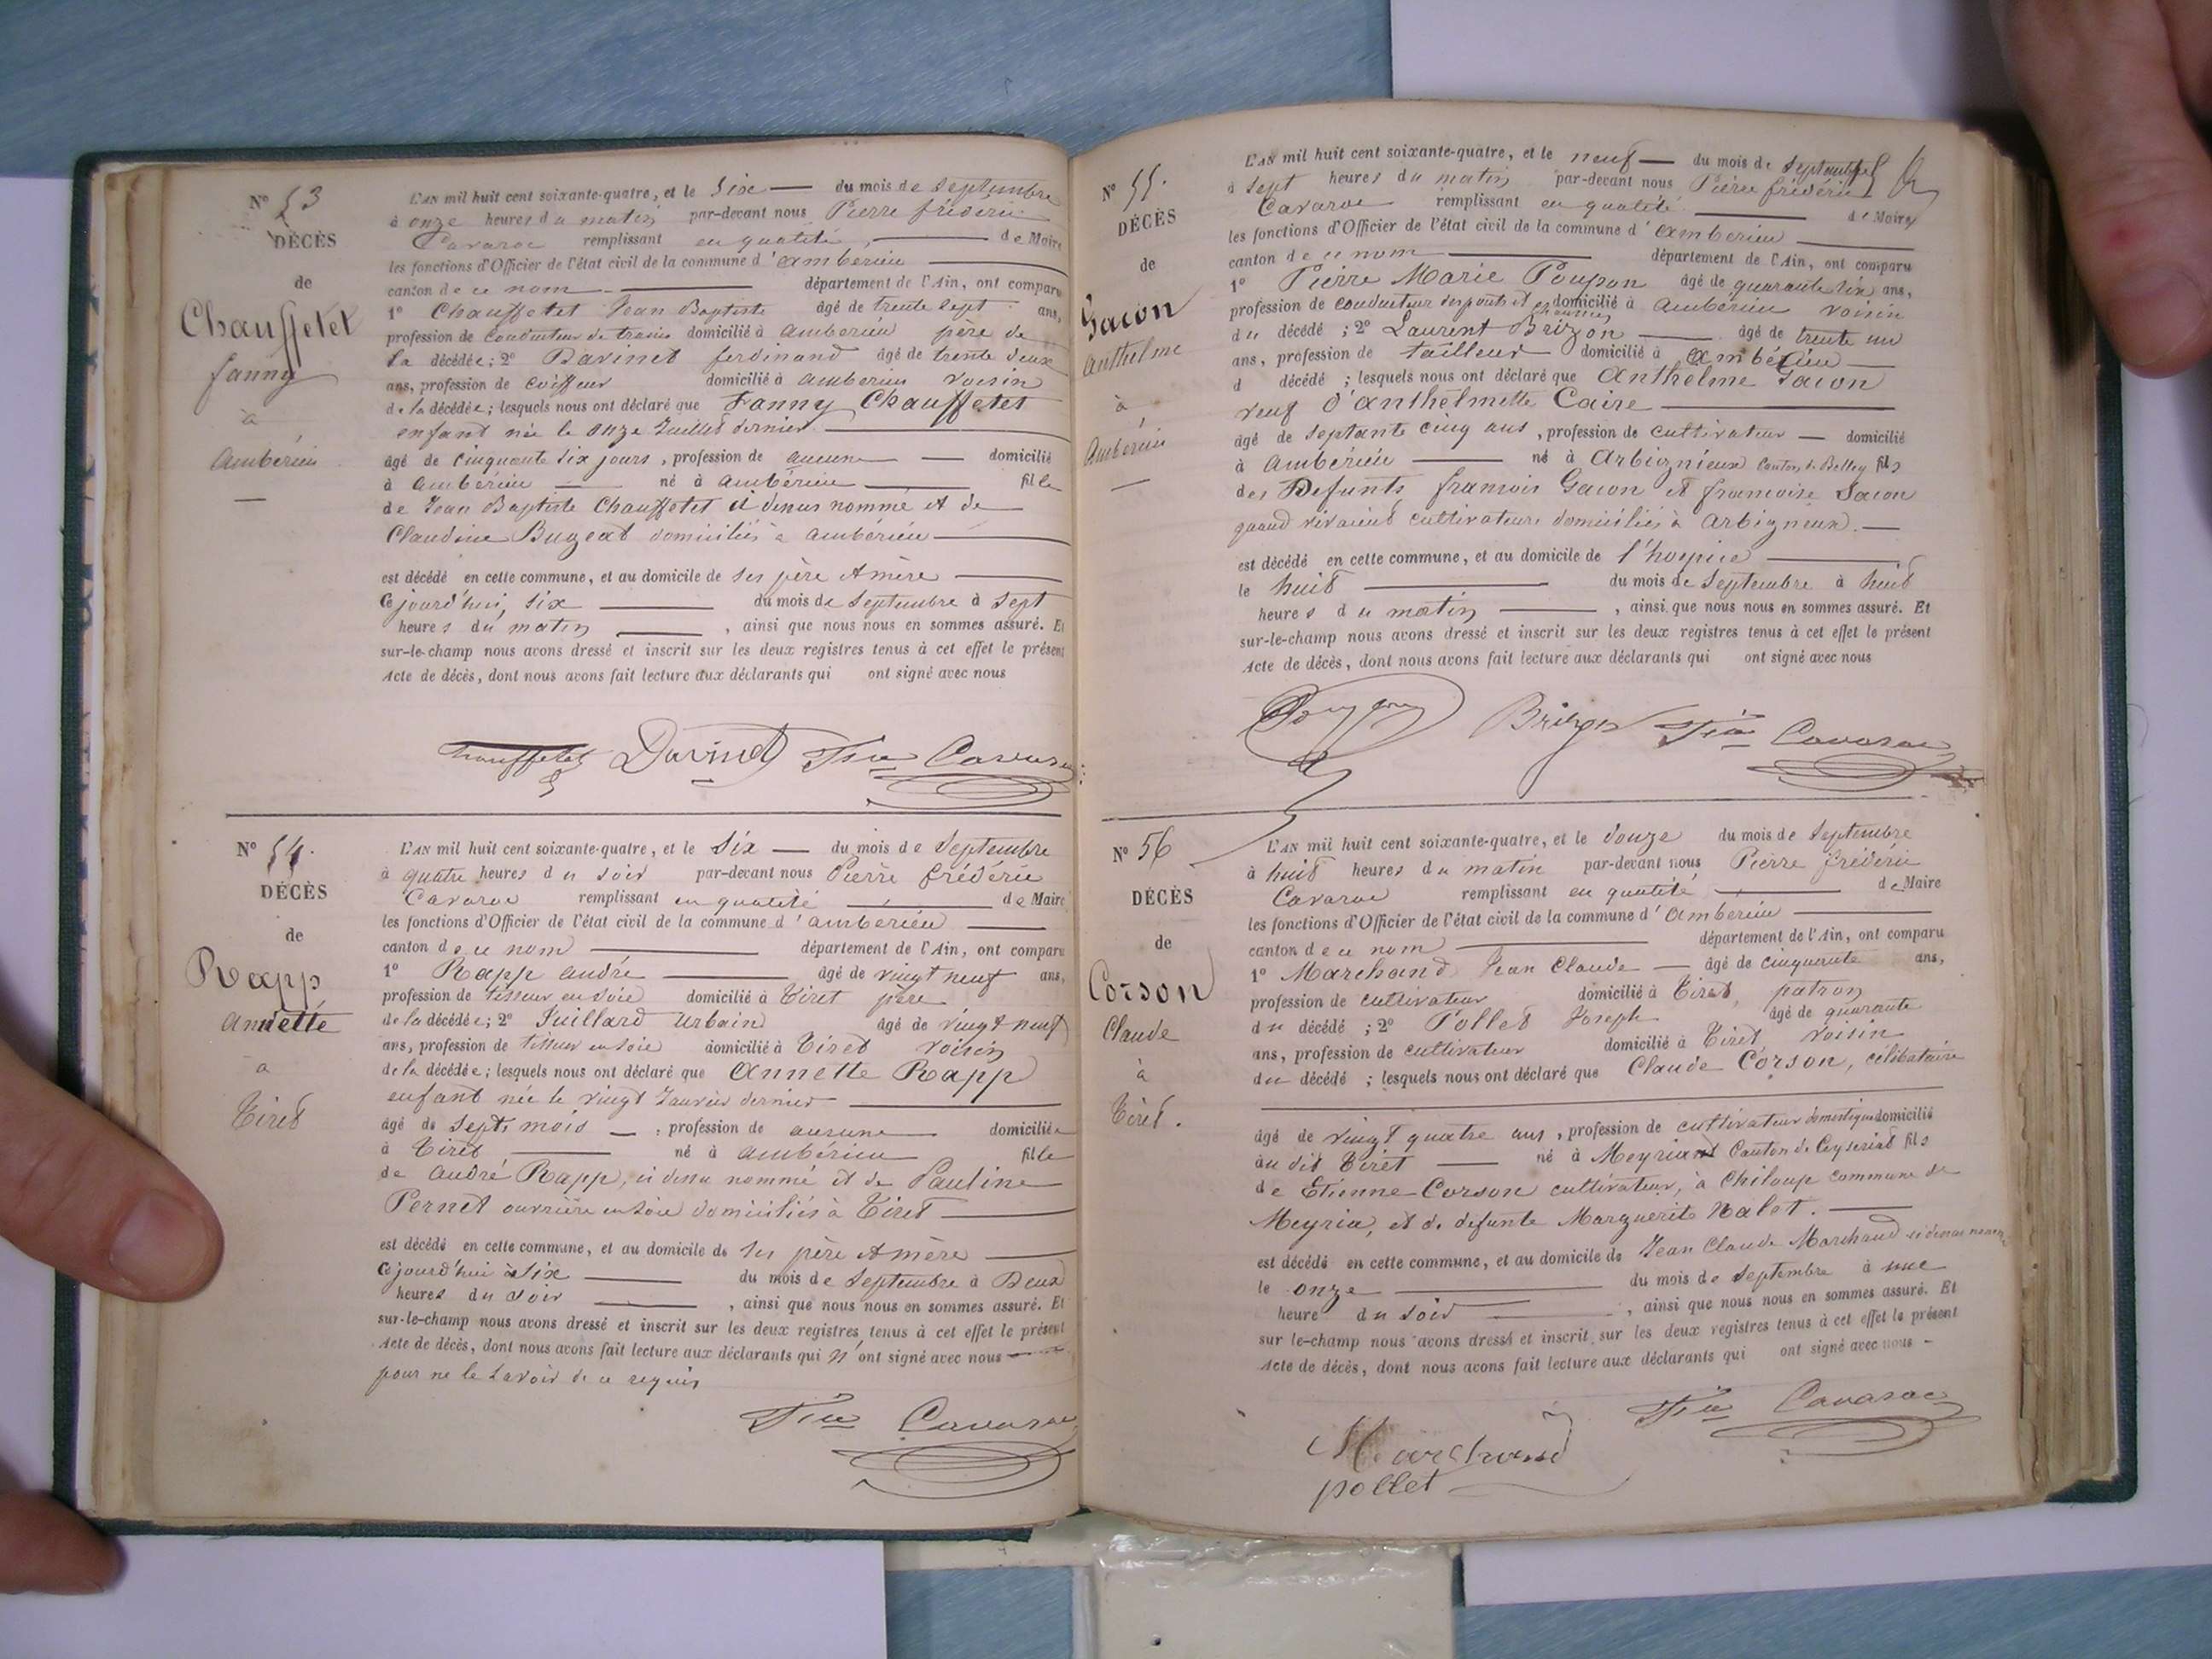 N° 53
DÉCÈS
de
Chauffetet
fanny
à
Ambérieu
L'AN mil huit cent soixante-quatre, et le Six du mois de Septembre
à onze heures du matin par-devant nous Pierre frédéric
Cavaroc remplissant en qualité de Maire
les fonctions d'Officier de l'état civil de la commune d'ambérieu
canton de ce nom département de l'Ain, ont comparu
1° Chauffetet Jean Baptiste âgé de trente sept ans,
profession de conducteur de trains domicilié à ambérieu père de
la décédée; 2° Davinet ferdinand âgé de trente deux
ans, profession de coiffeur domicilié à ambérieu voisin
de la décédée; lesquels nous ont déclaré que Fanny Chauffetet
enfant née le onze Juillet dernier
âgé de cinquante six jours, profession de aucune domicilié
à ambérieu né à ambérieu fille
de Jean Baptiste Chauffetet ci dessus nommé et de
Claudine Bugeat domiciliés à ambérieu
est décédé en cette commune, et au domicile de ses père et mère
Cejourd'hui, six du mois de Septembre à sept
heures du matin, ainsi que nous nous en sommes assuré. Et
sur-le-champ nous avons dressé et inscrit sur les deux registres tenus à cet effet le présent
Acte de décès, dont nous avons fait lecture aux déclarants qui ont signé avec nous
Chauffetet Davinet Fric Cavaroc
N° 54.
DÉCÈS
de
Rapp
Annette
à
Tiret
L'AN mil huit cent soixante-quatre, et le Six du mois de Septembre
à quatre heures du soir par-devant nous Pierre frédéric
Cavaroc remplissant en qualité de Maire
les fonctions d'Officier de l'état civil de la commune d'ambérieu
canton de ce nom département de l'Ain, ont comparu
1° Rapp andré âgé de vingt neuf ans,
profession de tisseur en soie domicilié à Tiret père
de la décédée; 2° Juillard Urbain âgé de vingt neuf
ans, profession de tisseur en soie domicilié à Tiret voisin
de la décédée; lesquels nous ont déclaré que Annette Rapp
enfant née le vingt Janvier dernier
âgé de sept mois, profession de aucune domiciliée
à Tiret né à ambérieu fille
de andré Rapp, ci dessus nommé et de Pauline
Pernet ouvrière en soie domiciliés à Tiret
est décédé en cette commune, et au domicile de ses père et mère
Cejourd'hui six du mois de Septembre à Deux
heures du soir, ainsi que nous nous en sommes assuré. Et
sur-le-champ nous avons dressé et inscrit sur les deux registres tenus à cet effet le présent
Acte de décès, dont nous avons fait lecture aux déclarants qui n'ont signé avec nous
pour ne le savoir de ce requis
Fric Cavaroc
N° 55.
DÉCÈS
de
Gacon
Anthelme
à
Ambérieu
L'AN mil huit cent soixante-quatre, et le neuf du mois de Septembre
à sept heures du matin par-devant nous Pierre frédéric
Cavaroc remplissant en qualité de Maire
les fonctions d'Officier de l'état civil de la commune d'ambérieu
canton de ce nom département de l'Ain, ont comparu
1° Pierre Marie Poupon âgé de quarante six ans,
profession de conducteur des ponts et chaussées domicilié à ambérieu voisin
du décédé; 2° Laurent Brizon âgé de trente un
ans, profession de tailleur domicilié à ambérieu
d décédé; lesquels nous ont déclaré que Anthelme Gacon
veuf d'anthelmette Caire
âgé de septante cinq ans, profession de cultivateur domicilié
à ambérieu né à Arbignieux Canton de Belley fils
des Défunts françois Gacon et françoise Gacon
quand vivaient cultivateurs domiciliés à arbignieux.
est décédé en cette commune, et au domicile de l'hospice
le huit du mois de Septembre à huit
heures du matin, ainsi que nous nous en sommes assuré. Et
sur-le-champ nous avons dressé et inscrit sur les deux registres tenus à cet effet le présent
Acte de décès, dont nous avons fait lecture aux déclarants qui ont signé avec nous
Poupon Brizon Fric Cavaroc
N° 56
DÉCÈS
de
Corson
Claude
à
Tiret.
L'AN mil huit cent soixante-quatre, et le douze du mois de Septembre
à huit heures du matin par-devant nous Pierre frédéric
Cavaroc remplissant en qualité de Maire
les fonctions d'Officier de l'état civil de la commune d'ambérieu
canton de ce nom département de l'Ain, ont comparu
1° Marchand Jean Claude âgé de cinquante ans,
profession de cultivateur domicilié à Tiret, patron
du décédé; 2° Pollet Joseph âgé de quarante
ans, profession de cultivateur domicilié à Tiret voisin
du décédé; lesquels nous ont déclaré que Claude Corson, célibataire
âgé de vingt quatre ans, profession de cultivateur domestique domicilié
au dit Tiret né à Meyriat Canton de Ceyzeriat fils
de Etienne Corson cultivateur, à Chiloup commune de
Meyria, et de défunte Marguerite Nalet.
est décédé en cette commune, et au domicile de Jean Claude Marchand ci dessus nommé
le onze du mois de Septembre à une
heure du soir, ainsi que nous nous en sommes assuré. Et
sur le-champ nous avons dressé et inscrit sur les deux registres tenus à cet effet le présent
Acte de décès, dont nous avons fait lecture aux déclarants qui ont signé avec nous
Fric Cavaroc
Marchand
pollet